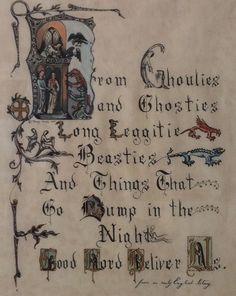 From Ghoulies
and Ghosties
Long Leggitie
Beasties
And Things That
Go Bump in the
Night
Good Lord Deliver Us.
from an early English Litany